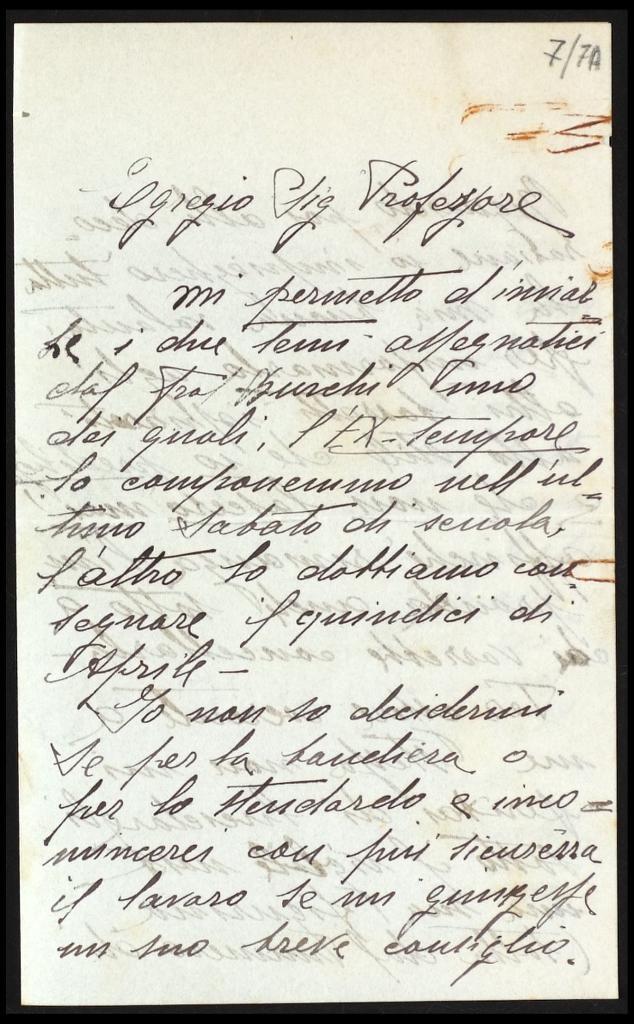 7/7A
Egregio Sig Professore
mi permetto d'inviar
Le i due temi assegnatici
dal Prof Burchi uno
dei quali, l'EX-tempore
lo componemmo nell'ul=
timo sabato di scuola,
l'altro lo dobbiamo con
segnare il quindici di
Aprile –
Io non so decidermi
se per la bandiera o
per lo stendardo e inco=
mincerei con più sicurezza
il lavoro se mi giungesse
un suo breve consiglio.